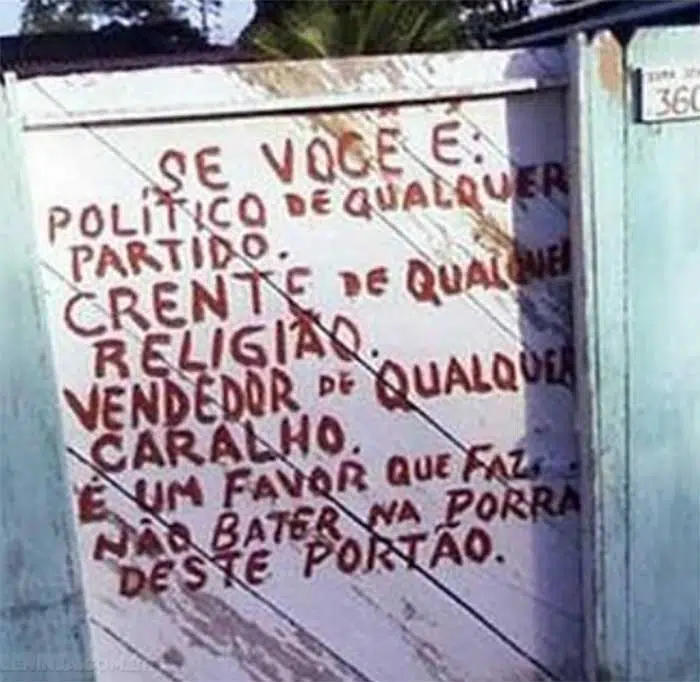 SE VOCÊ É:
POLÍTICO DE QUALQUER
PARTIDO.
CRENTE DE QUALQUER
RELIGIÃO.
VENDEDOR DE QUALQUER
CARALHO.
É UM FAVOR QUE FAZ.
NÃO BATER NA PORRA
DESTE PORTÃO.
360